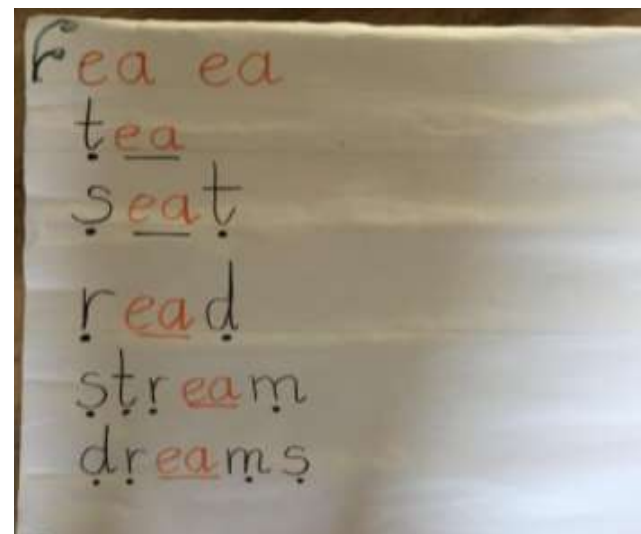 ea ea
tea
seat
read
stream
dreams